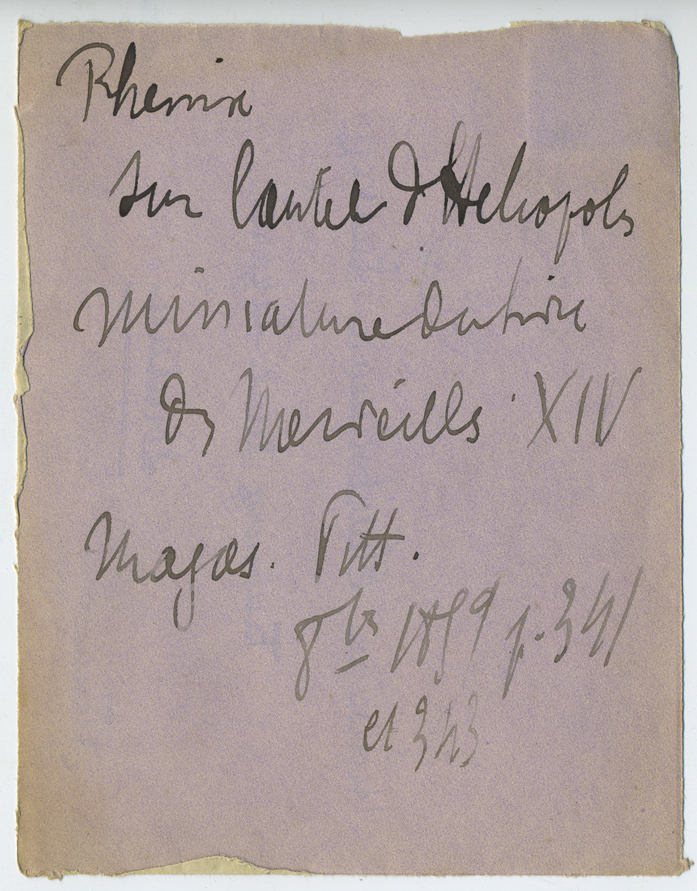 Phenix
sur l'autel d'Heliopolis
miniature du livre
des Merveilles XIV
Magas. Pitt.
8bre 1859 p. 341
et 343